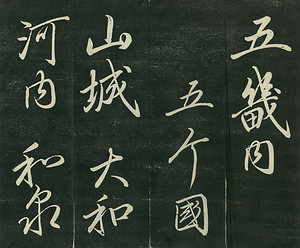 五畿内
五个國
山城 大和
河内 和泉